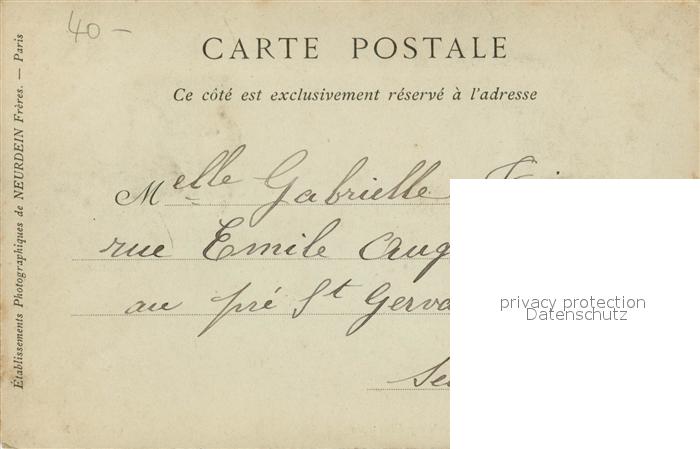 40 –
CARTE POSTALE
Ce côté est exclusivement réservé à l'adresse
Melle Gabrielle
rue Emile Aug
au pré St Gerva
Se
privacy protection
Datenschutz
Établissements Photographiques de NEURDEIN Frères. — Paris